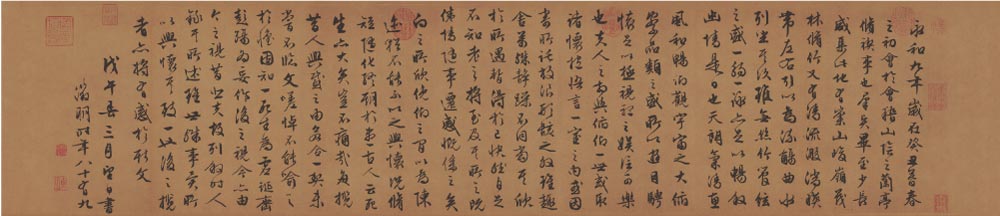 永和九年歲在癸丑暮春
之初會于會稽山陰之蘭亭
脩禊事也羣賢畢至少長
咸集此地有崇山峻嶺茂
林脩竹又有清流激湍暎
帶左右引以為流觴曲水
列坐其次雖無絲竹管絃
之盛一觴一詠亦足以暢敘
幽情是日也天朗氣清惠
風和暢仰觀宇宙之大俯
察品類之盛所以遊目騁
懷足以極視聽之娛信可樂
也夫人之相與俯仰一世或取
諸懷抱悟言一室之內或因
寄所託放浪形骸之外雖趣
舍萬殊靜躁不同當其欣
於所遇暫得於己快然自足
不知老之將至及其所之既
倦情隨事遷感慨係之矣
向之所欣俛仰之間以為陳
迹猶不能不以之興懷況脩
短隨化終期於盡古人云死
生亦大矣豈不痛哉每攬
昔人興感之由若合一契未
嘗不臨文嗟悼不能喻之
於懷固知一死生為虛誕齊
彭殤為妄作後之視今亦由
今之視昔悲夫故列敘時人
錄其所述雖世殊事異所
以興懷其致一也後之攬
者亦將有感於斯文
戊午三月望日書
徵明時年八十有九